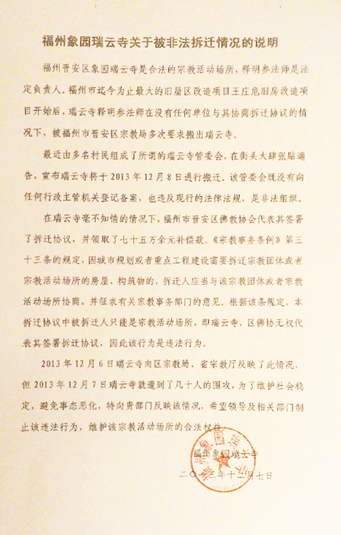 福州象园瑞云寺关于被非法拆迁情况的说明
福州晋安区象园瑞云寺是合法的宗教活动场所，释明参法师是法
定负责人。福州市迄今为止最大的旧屋区改造项目王庄危旧房改造项
目开始后，瑞云寺释明参法师在没有任何单位与其协商拆迁协议的情
况下，被福州市晋安区宗教局多次要求搬出瑞云寺。
最近由多名村民组成了所谓的瑞云寺管委会，在街头大肆张贴通
告，宣布瑞云寺将于2013年12月8日进行搬迁。该管委会既没有向
任何行政主管机关登记备案，也违反现行的法律法规，是非法组织。
在瑞云寺毫不知情的情况下，福州市晋安区佛教协会代表其签署
了拆迁协议，并领取了七十五万余元补偿款。《宗教事务条例》第三
十三条的规定，因城市规划或者重点工程建设需要拆迁宗教团体或者
宗教活动场所的房屋、构筑物的，拆迁人应当与该宗教团体或者宗教
活动场所协商，并征求有关宗教事务部门的意见。根据该条规定，本
拆迁协议中被拆迁人只能是宗教活动场所，即瑞云寺。区佛协无权代
表其签署拆迁协议，因此该行为是违法行为。
2013年12月6日瑞云寺向区宗教局、省宗教厅反映了此情况，
但2013年12月7日瑞云寺就遭到了几十人的围攻，为了维护社会稳
定，避免事态恶化，特向贵部门反映该情况，希望领导及相关部门制
止该违法行为，维护该宗教活动场所的合法权益。
福州象园瑞云寺
二〇一三年十二月七日